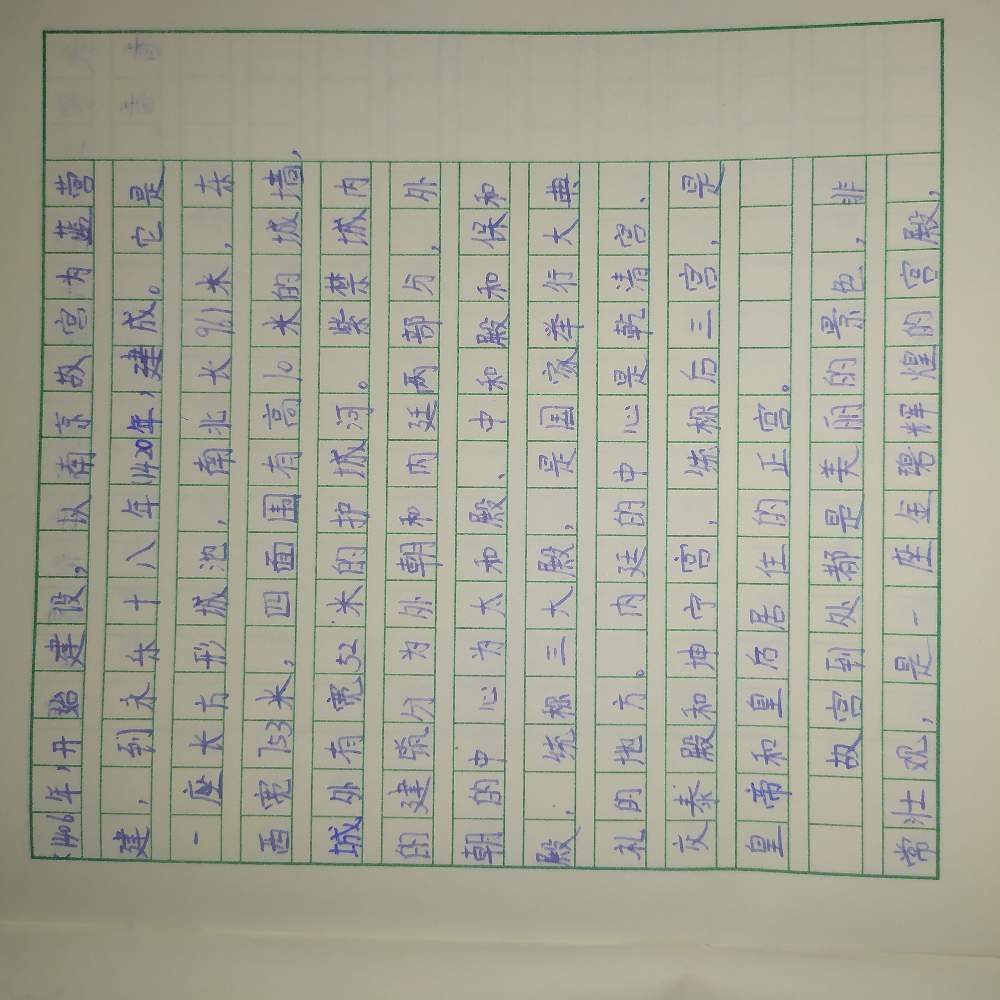 (1406年)开始建设，以南京故宫为蓝营
建，到永乐十八年(1420年)建成。它是
一座长方形城池，南北长961米，东
西宽753米，四面围有高10米的城墙，
城外有宽52米的护城河。紫禁城内
的建筑分为外朝和内廷两部分，外
朝的中心为太和殿、中和殿和保和
殿，统称三大殿，是国家举行大典
礼的地方。内廷的中心是乾清宫、
交泰殿和坤宁宫，统称后三宫，是
皇帝和皇后居住的正宫。
故宫到处都是美丽的景色，非
常壮观，是一座金碧辉煌的宫殿，